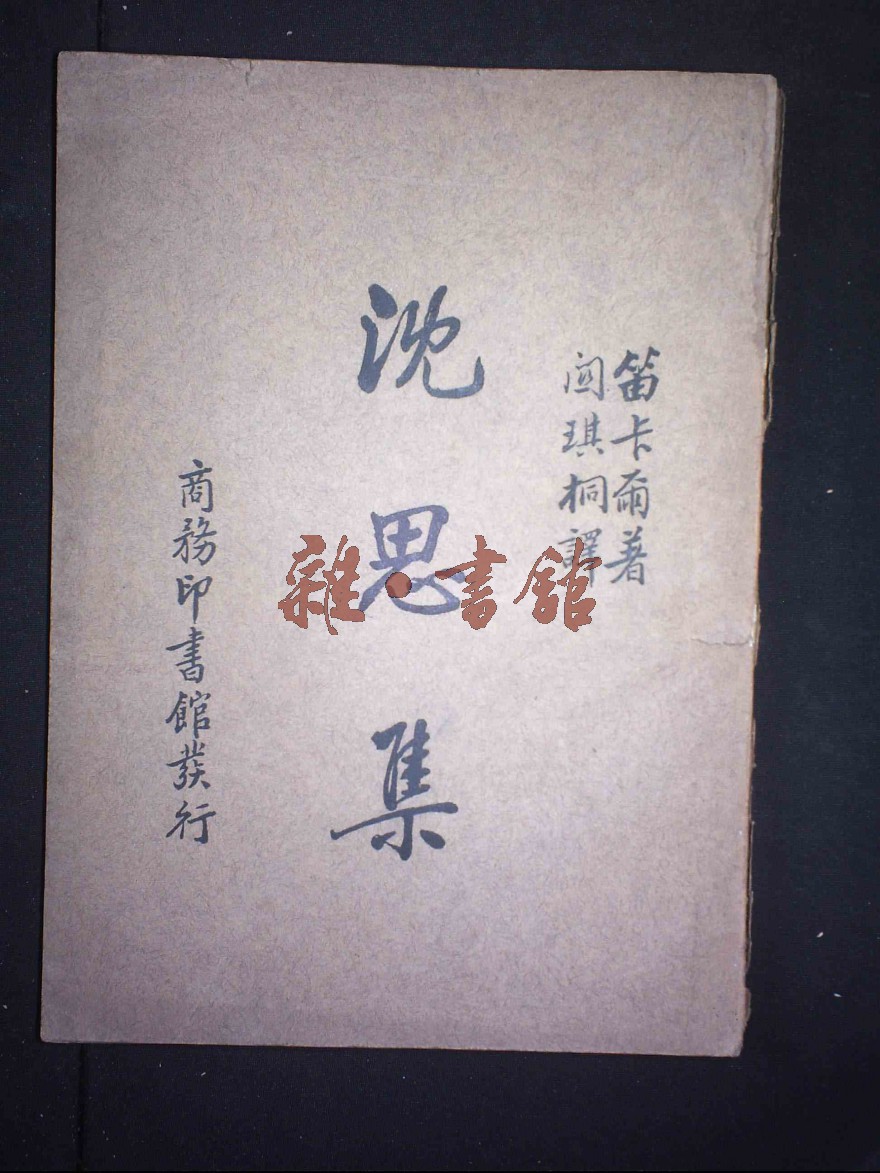 笛卡爾著
関琪桐譯
沈思集
商務印書館發行
雜·書館